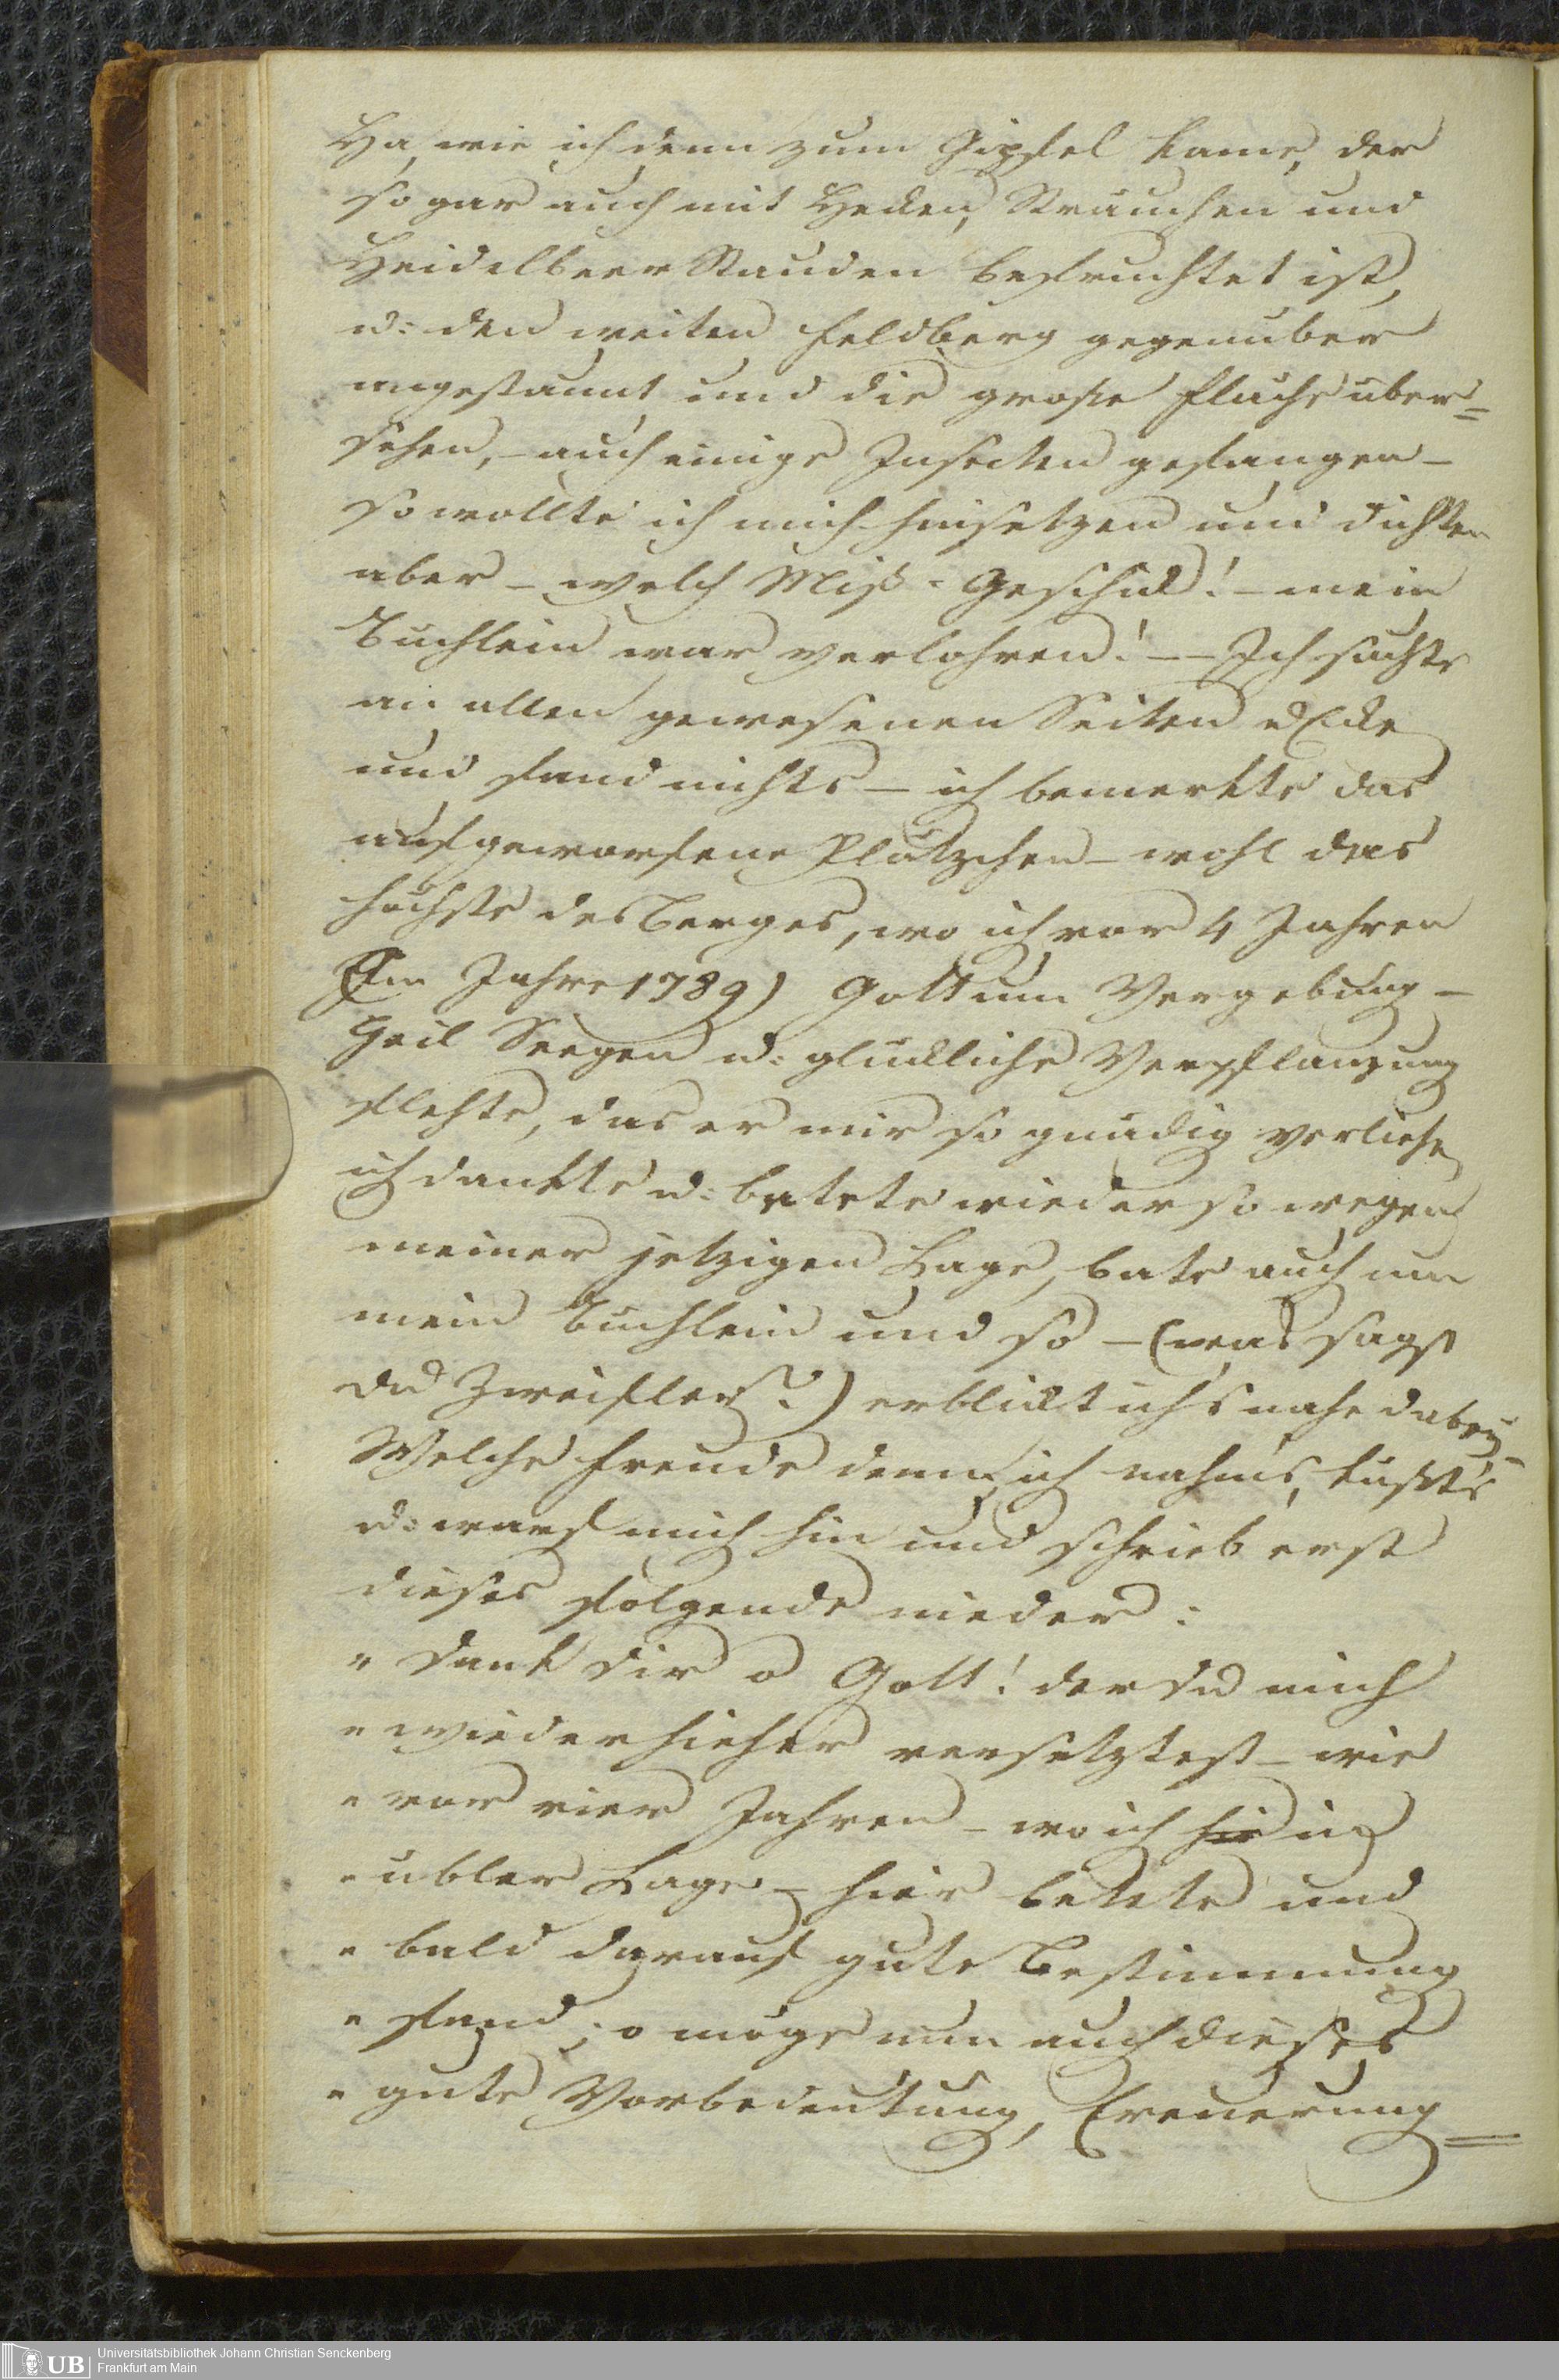 Ha, wie ich denn zum Gipfel kame, der
so gar auch mit Hecken, Sträuchen und
Heidelbeer Stauden befruchtet ist,
u: den weiten Feldberg gegenüber
angestaunt und die große Fläche über=
sehen, – auch einige Insecten gefangen –
so wollte ich mich hinsetzen und dichten
aber – welch Miß-Geschick! – mein
Büchlein war verlohren! – – Ich suchte
an allen gewesenen Seiten u Ecke
und fand nichts – ich bemerkte das
aufgeworfene Plätzchen – wohl das
höchste des Berges, wo ich vor 4 Jahren
(Im Jahre 1789) Gott um Vergebung –
Heil Seegen u: glückliche Verpflanzung
flehte, das er mir so gnädig verliehe
ich dankte u: betete wieder so wegen
meiner jetzigen Lage, bate auch um
mein Büchlein und so – (was sagst
du Zweifler?) erblickt ichs nahe dabey –
Welche Freude denn, ich nahms, küßt's
u: warf mich hin und schrieb erst
dieses folgende nieder:
" Dank dir o Gott! der du mich
" wieder hieher versetztest – wie
" vor vier Jahren – wo ich hie in
" übler Lage – hier betete und
" bald darauf gute Bestimmung
" fand; o möge nun auch dieses
" gute Vorbedeutung, Erneuerung =
UB Universitätsbibliothek Johann Christian Senckenberg
Frankfurt am Main